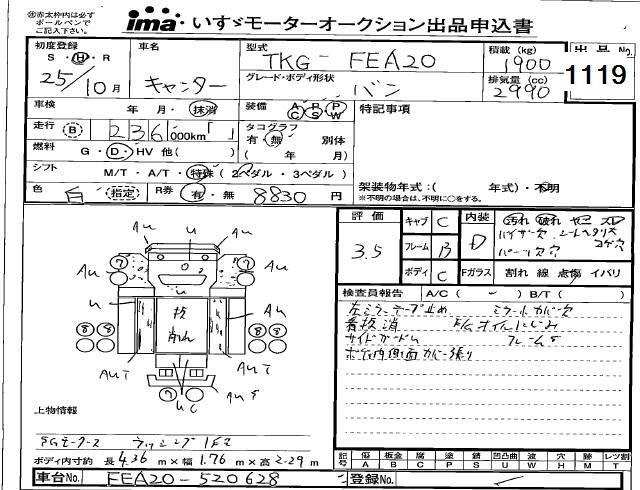 ㊟赤太枠内は必ず
ボールペンで
ご記入下さい。
ima いすゞモーターオークション出品申込書
初度登録
S・H・R
25/10月
車名
キャンター
型式
TKG-FEA20
グレード・ボディ形状
バン
積載(kg)
1900
排気量(cc)
2990
出品No
1119
車検 年 月・抹消
装備 A P P C S W
特記事項
走行 B 236 000km
タコグラフ
有・無 別体
( 年 月)
燃料 G・D・HV 他( )
シフト M/T・A/T・特殊(2ペダル・3ペダル)
色 白 (指定) R券 有・無 8830円
架装物年式:( 年式)・不明
※不明の場合は、不明に○をする。
評価 3.5
キャブ C
フレーム B
ボディ C
内装 D
汚れ 破れ ヤニ スレ
Fガラス 割れ 線 点傷 イバリ
検査員報告 A/C( - ) B/T( )
左ミラーテープ止め ミラーカバー欠
看板消
サイドガード
ボデ内側面カバー張り
Au Au
u
Au Au
u Au
抜
AuT AuT
uC
上物情報
ラッシング1段
ボディ内寸約 長 4.36 m×幅 1.76 m×高 2.29 m
車台No. FEA20-520628
記号 傷 板金 腐 塗 錆 凹凸曲 波 穴 跡 レンズ割
A B C P S U W H M T
登録No.